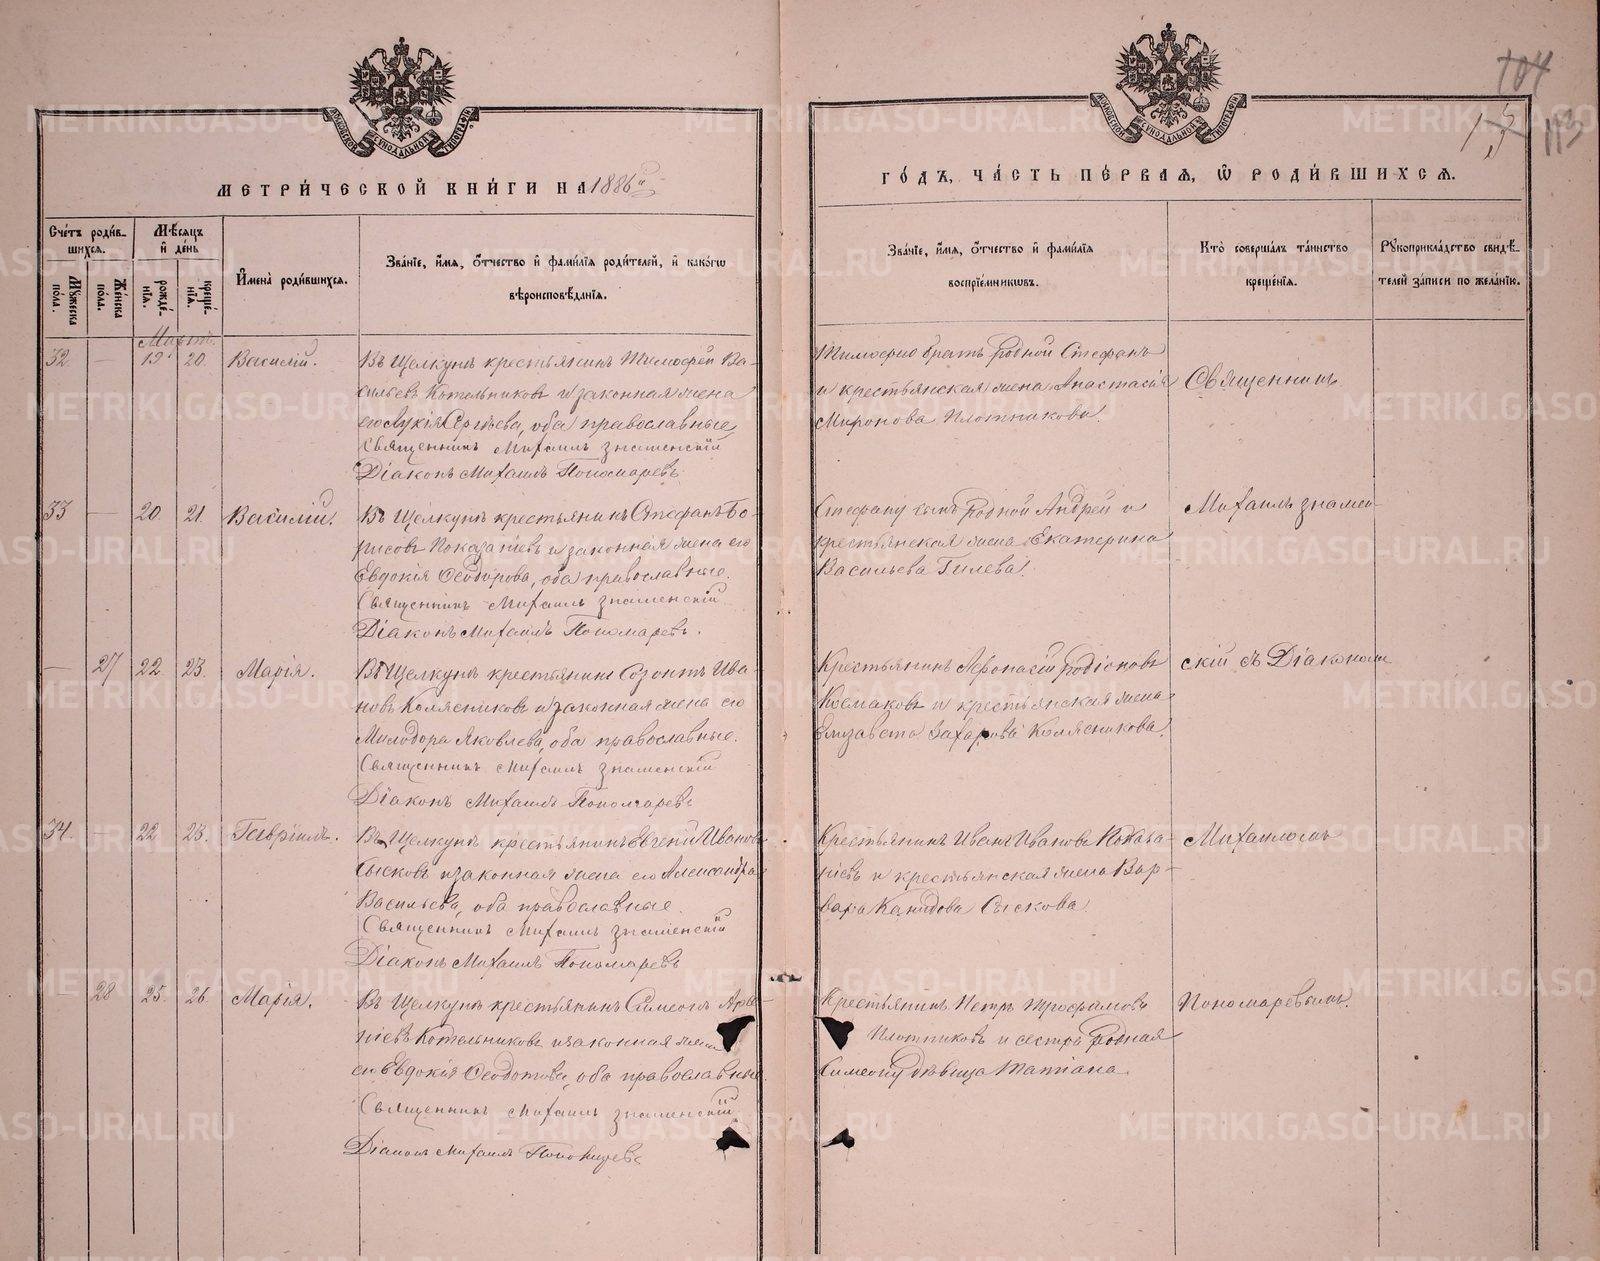 МЕТРИ́ЧЕСКОЙ КНИ́ГИ НА 1886й
ГО́ДЪ, ЧА́СТЬ ПЕ́РВАЯ, Ѽ РОДИ́ВШИХСѦ.
104
113
Сче́тъ роди́в-
шихсѧ.
Мꙋжеска по́ла.
Же́нска по́ла.
Мѣ́сѧцъ
и де́нь
рожде́-
нїѧ.
креще́-
нїѧ.
Имена̀ роди́вшихсѧ.
Зва́нїе, и́мѧ, о́тчество и фами́лїѧ роди́телей, и како́гѡ
вѣроисповѣ́данїѧ.
Зва́нїе, и́мѧ, о́тчество и фами́лїѧ
воспрїе́мникѡвъ.
Кто̀ соверша́лъ та́инство
креще́нїѧ.
Рꙋкоприкла́дство свидѣ́-
телей за́писи по жела́нїю.
Мартъ
32 — 19 20 Василій.
Въ Щелкунѣ крестьянинъ Тимофей Ва-
сильевъ Котельниковъ и законная жена
его Лукія Сергѣева, оба православные
Священникъ Михаилъ Знаменскій
Діаконъ Михаилъ Пономаревъ
Тимофею братъ родной Стефанъ
и крестьянская жена Анастасія
Миронова Плотникова.
Священникъ
33 — 20 21 Василій.
Въ Щелкунѣ крестьянинъ Стефанъ Бо-
рисовъ Показаніевъ и законная жена его
Евдокія Ѳеодорова, оба православные.
Священникъ Михаилъ Знаменскій
Діаконъ Михаилъ Пономаревъ.
Стефану сынъ родной Андрей и
крестьянская жена Екатерина
Васильева Гилева.
Михаилъ Знамен-
— 27 22 23. Марія.
Въ Щелкунѣ крестьянинъ Созонтъ Ива-
новъ Колясниковъ и законная жена его
Милодора Яковлева, оба православные.
Священникъ Михаилъ Знаменскій
Діаконъ Михаилъ Пономаревъ
Крестьянинъ Аѳонасій Родіоновъ
Космаковъ и крестьянская жена
Елизавета Захарова Колясникова.
скій съ Діакономъ
34. — 22 23. Гавріилъ.
Въ Щелкунѣ крестьянинъ Евгеній Ивановъ
Сысковъ и законная жена его Александра
Васильева, оба православные.
Священникъ Михаилъ Знаменскій
Діаконъ Михаилъ Пономаревъ
Крестьянинъ Иванъ Ивановъ Показа-
ніевъ и крестьянская жена Вар-
вара Канидова Сыскова.
Михаиломъ
— 28 25. 26. Марія.
Въ Щелкунѣ крестьянинъ Симеонъ Арсе-
ніевъ Котельниковъ и законная жена
его Евдокія Ѳеодотова, оба православные.
Священникъ Михаилъ Знаменскій
Діаконъ Михаилъ Пономаревъ
Крестьянинъ Петръ Трофимовъ
Плотниковъ и сестра родная
Симеону дѣвица Татіана.
Пономаревымъ.
METRIKI.GASO-URAL.RU